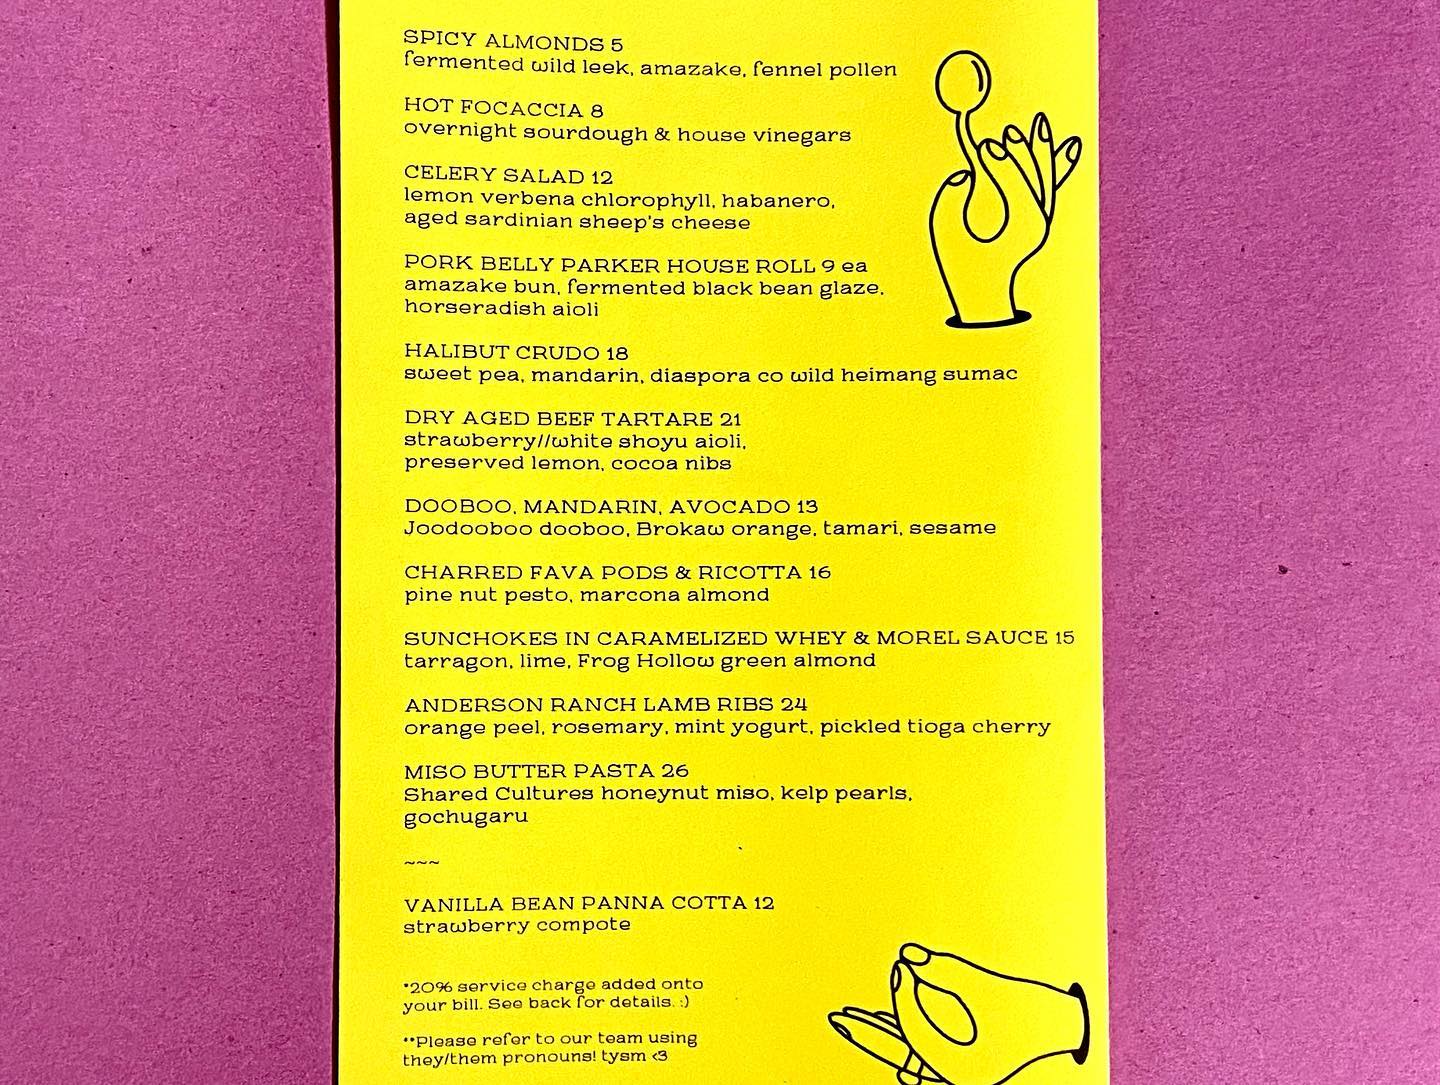 SPICY ALMONDS 5
fermented wild leek, amazake, fennel pollen
HOT FOCACCIA 8
overnight sourdough & house vinegars
CELERY SALAD 12
lemon verbena chlorophyll, habanero,
aged sardinian sheep's cheese
PORK BELLY PARKER HOUSE ROLL 9 ea
amazake bun, fermented black bean glaze,
horseradish aioli
HALIBUT CRUDO 18
sweet pea, mandarin, diaspora co wild heimang sumac
DRY AGED BEEF TARTARE 21
strawberry//white shoyu aioli,
preserved lemon, cocoa nibs
DOOBOO, MANDARIN, AVOCADO 13
Joodooboo dooboo, Brokaw orange, tamari, sesame
CHARRED FAVA PODS & RICOTTA 16
pine nut pesto, marcona almond
SUNCHOKES IN CARAMELIZED WHEY & MOREL SAUCE 15
tarragon, lime, Frog Hollow green almond
ANDERSON RANCH LAMB RIBS 24
orange peel, rosemary, mint yogurt, pickled tioga cherry
MISO BUTTER PASTA 26
Shared Cultures honeynut miso, kelp pearls,
gochugaru
~~~
VANILLA BEAN PANNA COTTA 12
strawberry compote
*20% service charge added onto
your bill. See back for details. :)
**Please refer to our team using
they/them pronouns! tysm <3